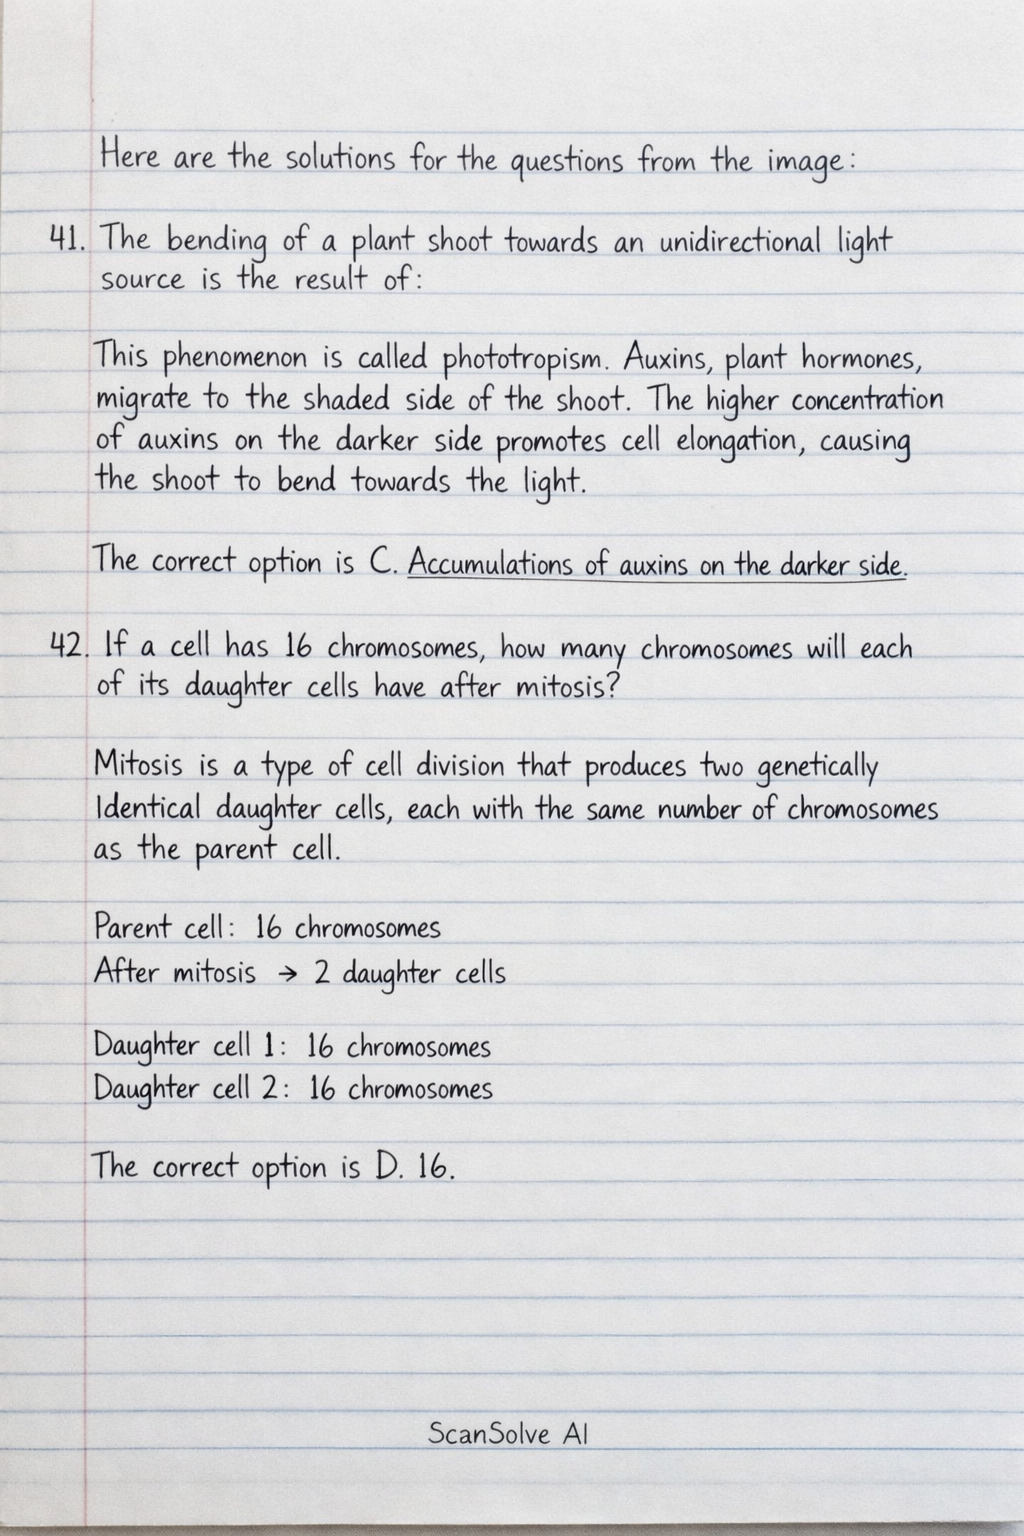 Here are the solutions for the questions from the image:
41. The bending of a plant shoot towards an unidirectional light
source is the result of:
This phenomenon is called phototropism. Auxins, plant hormones,
migrate to the shaded side of the shoot. The higher concentration
of auxins on the darker side promotes cell elongation, causing
the shoot to bend towards the light.
The correct option is C. Accumulations of auxins on the darker side.
42. If a cell has 16 chromosomes, how many chromosomes will each
of its daughter cells have after mitosis?
Mitosis is a type of cell division that produces two genetically
Identical daughter cells, each with the same number of chromosomes
as the parent cell.
Parent cell: 16 chromosomes
After mitosis → 2 daughter cells
Daughter cell 1: 16 chromosomes
Daughter cell 2: 16 chromosomes
The correct option is D. 16.
ScanSolve AI